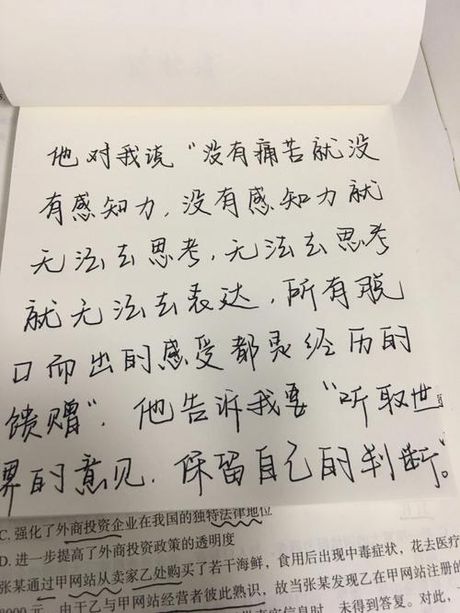 他对我说"没有痛苦就没
有感知力,没有感知力就
无法去思考,无法去思考
就无法去表达,所有脱
口而出的感受都是经历的
馈赠",他告诉我要"听取世
界的意见,保留自己的判断"。
C. 强化了外商投资企业在我国的独特法律地位
D. 进一步提高了外商投资政策的透明度
张某通过甲网站从卖家乙处购买了若干海鲜,食用后出现中毒症状,花去医疗
8000元。由于乙与甲网站经营者彼此熟识,故当张某发现乙在甲网站注册的
时,未得到答复。对此,